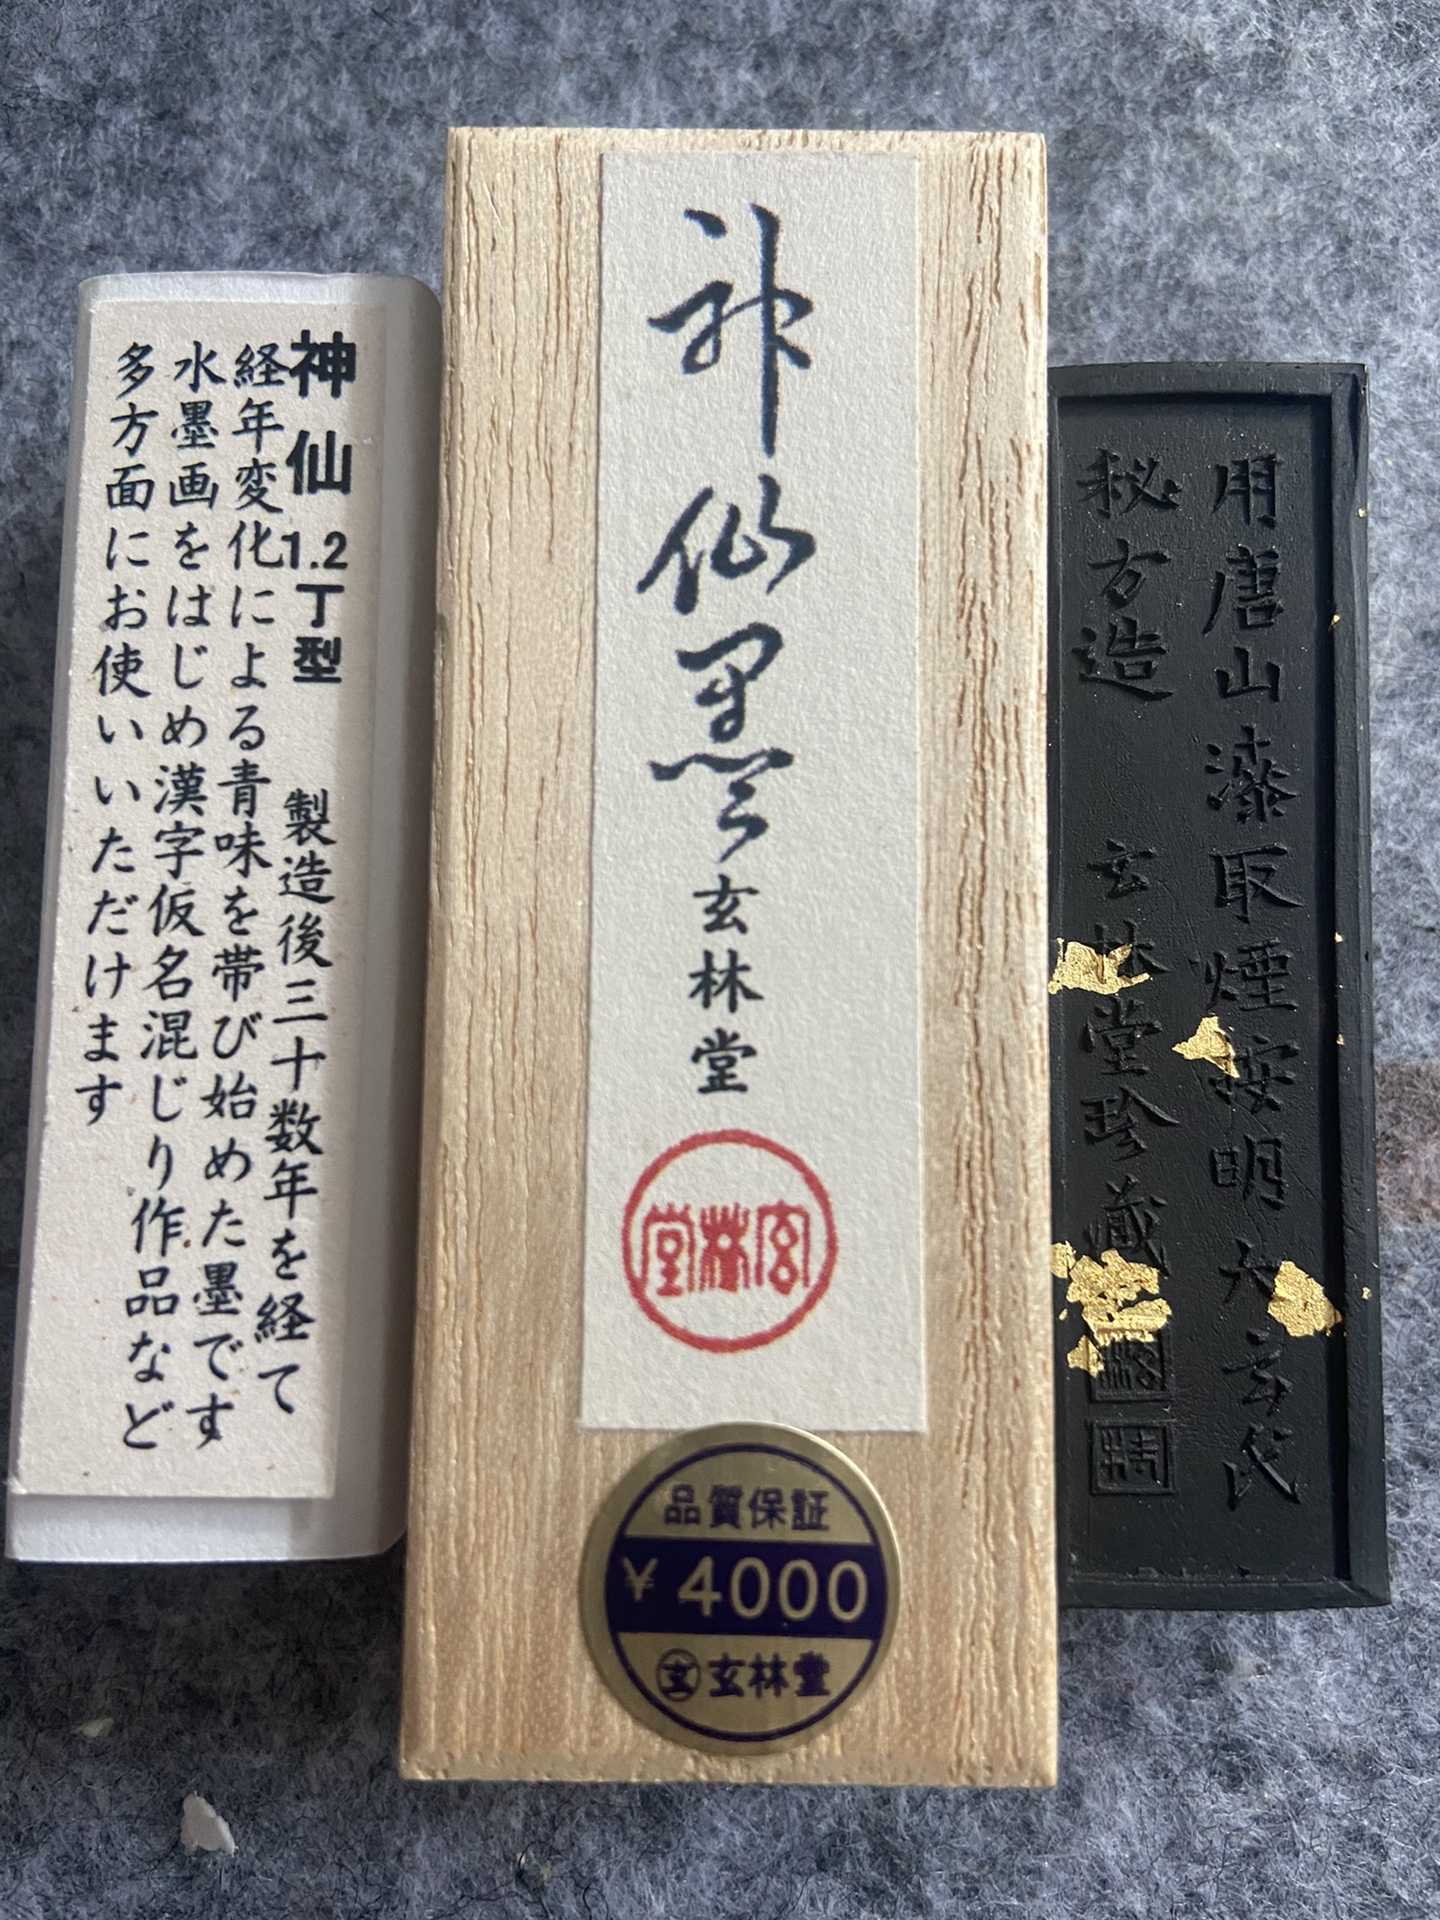 神仙 1.2丁型 製造後三十数年を経て
経年変化による青味を帯び始めた墨です
水墨画をはじめ漢字仮名混じり作品など
多方面にお使いいただけます
神仙墨 玄林堂
玄林堂
品質保証
¥4000
玄 玄林堂
用唐山漆取煙按明大玄氏
秘方造 玄林堂珍藏